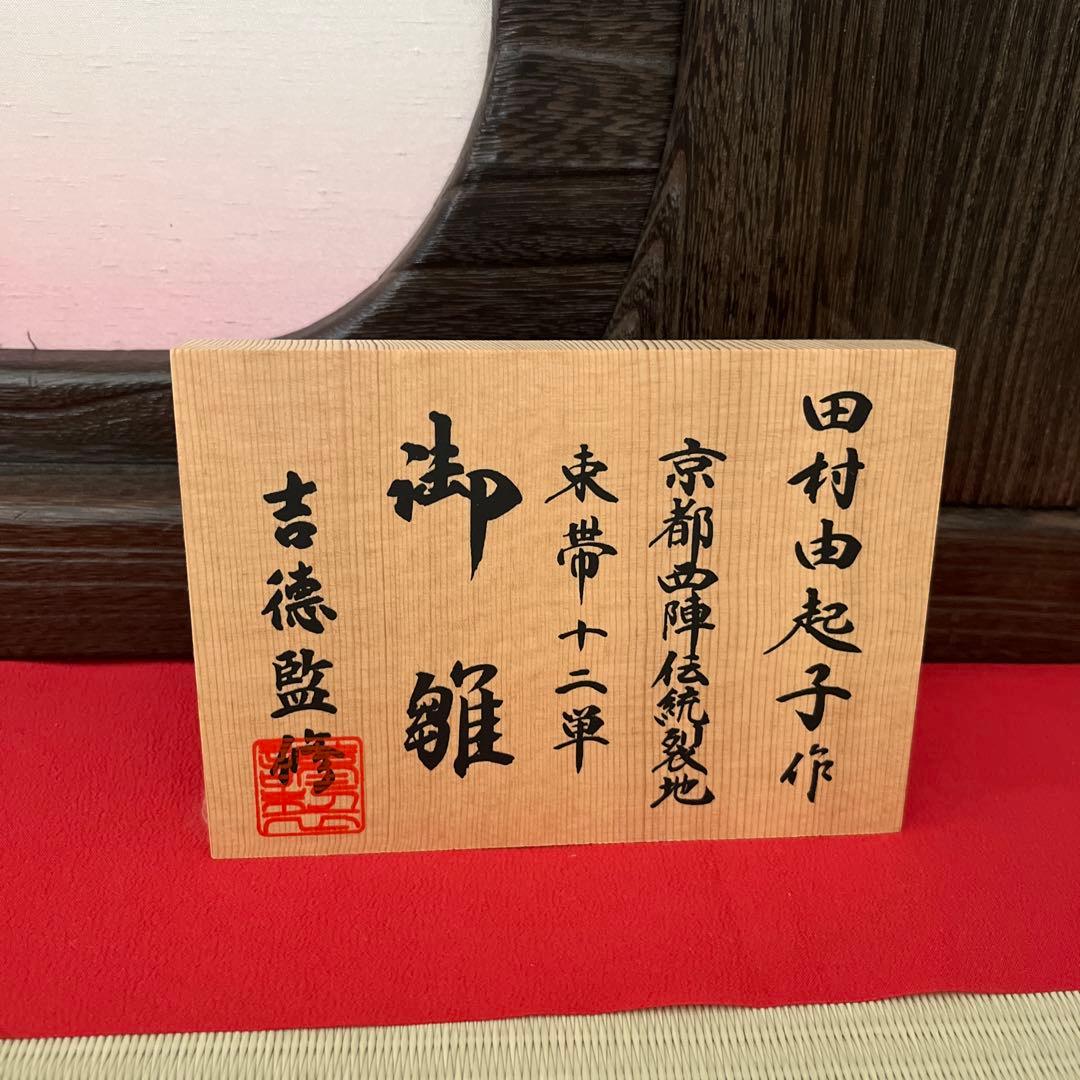 田村由起子作
京都西陣伝統裂地
束帯十二単
御雛
吉徳監修